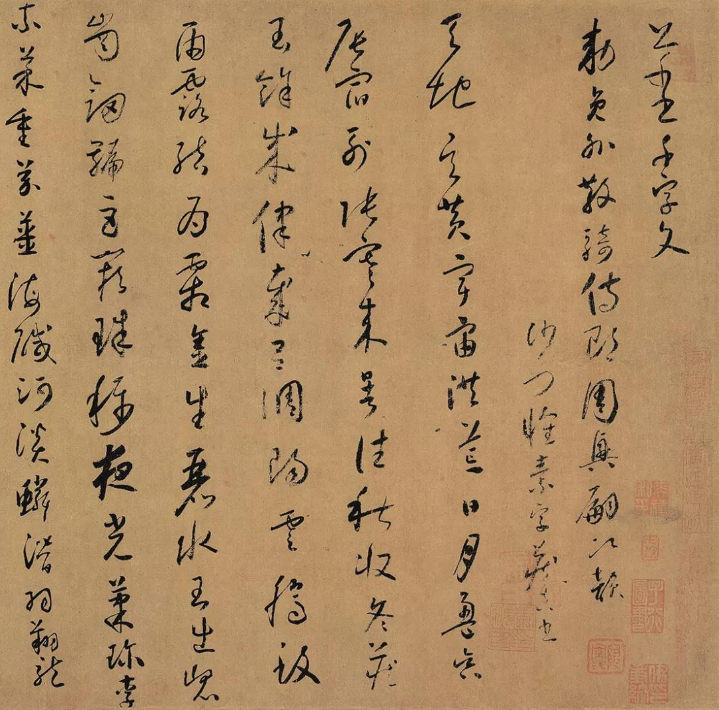 千字文
勅員外散騎侍郎周興嗣次韻
沙門懷素字藏真
天地玄黃宇宙洪荒日月盈昃
辰宿列張寒來暑往秋收冬藏
閏餘成律歲呂調陽雲騰致
雨露結為霜金生麗水玉出崑
崗劍號巨闕珠稱夜光菓珍李
柰菜重芥薑海鹹河淡鱗潛羽翔龍